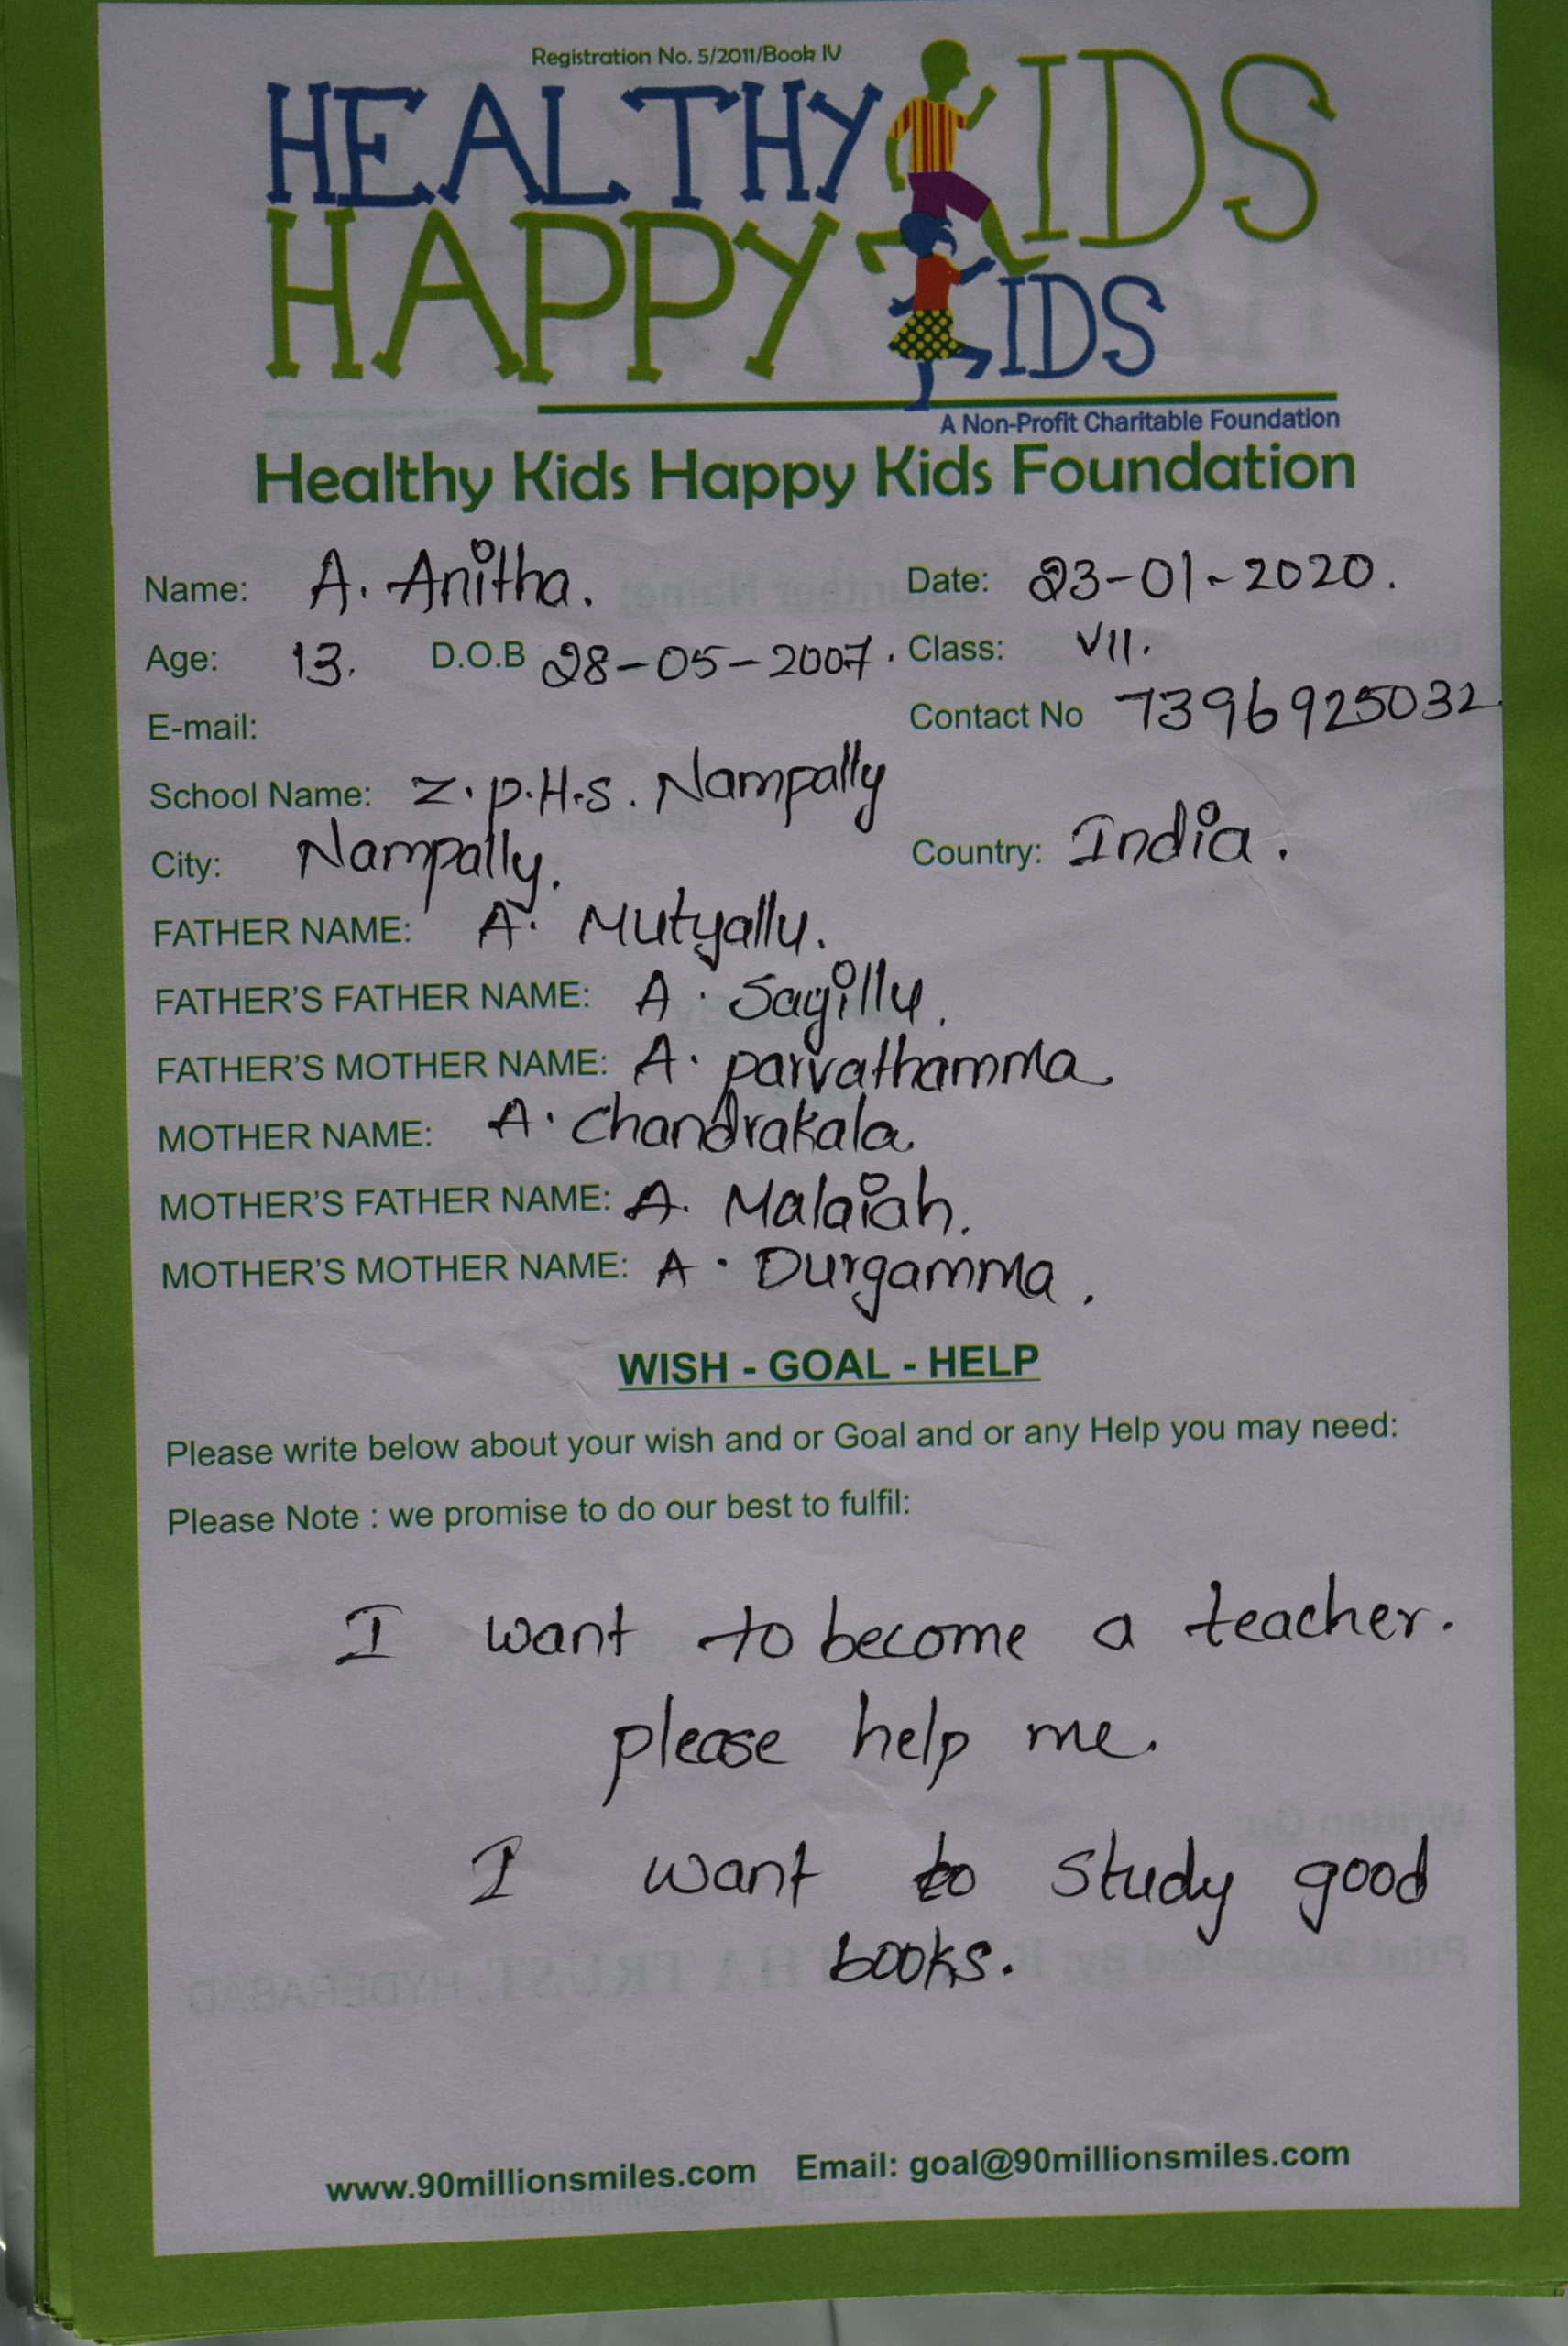 Registration No. 5/2011/Book IV
HEALTHY KIDS
HAPPY KIDS
A Non-Profit Charitable Foundation
Healthy Kids Happy Kids Foundation
Name: A. Anitha. Date: 23-01-2020.
Age: 13. D.O.B 28-05-2007. Class: VII.
E-mail: Contact No 7396925032
School Name: Z.P.H.S. Nampally
City: Nampally. Country: India.
FATHER NAME: A. Mutyallu.
FATHER'S FATHER NAME: A. Sayillu.
FATHER'S MOTHER NAME: A. parvathamma
MOTHER NAME: A. Chandrakala
MOTHER'S FATHER NAME: A. Malaiah.
MOTHER'S MOTHER NAME: A. Durgamma.
WISH - GOAL - HELP
Please write below about your wish and or Goal and or any Help you may need:
Please Note : we promise to do our best to fulfil:
I want to become a teacher.
please help me.
I want to study good
books.
www.90millionsmiles.com Email: goal@90millionsmiles.com